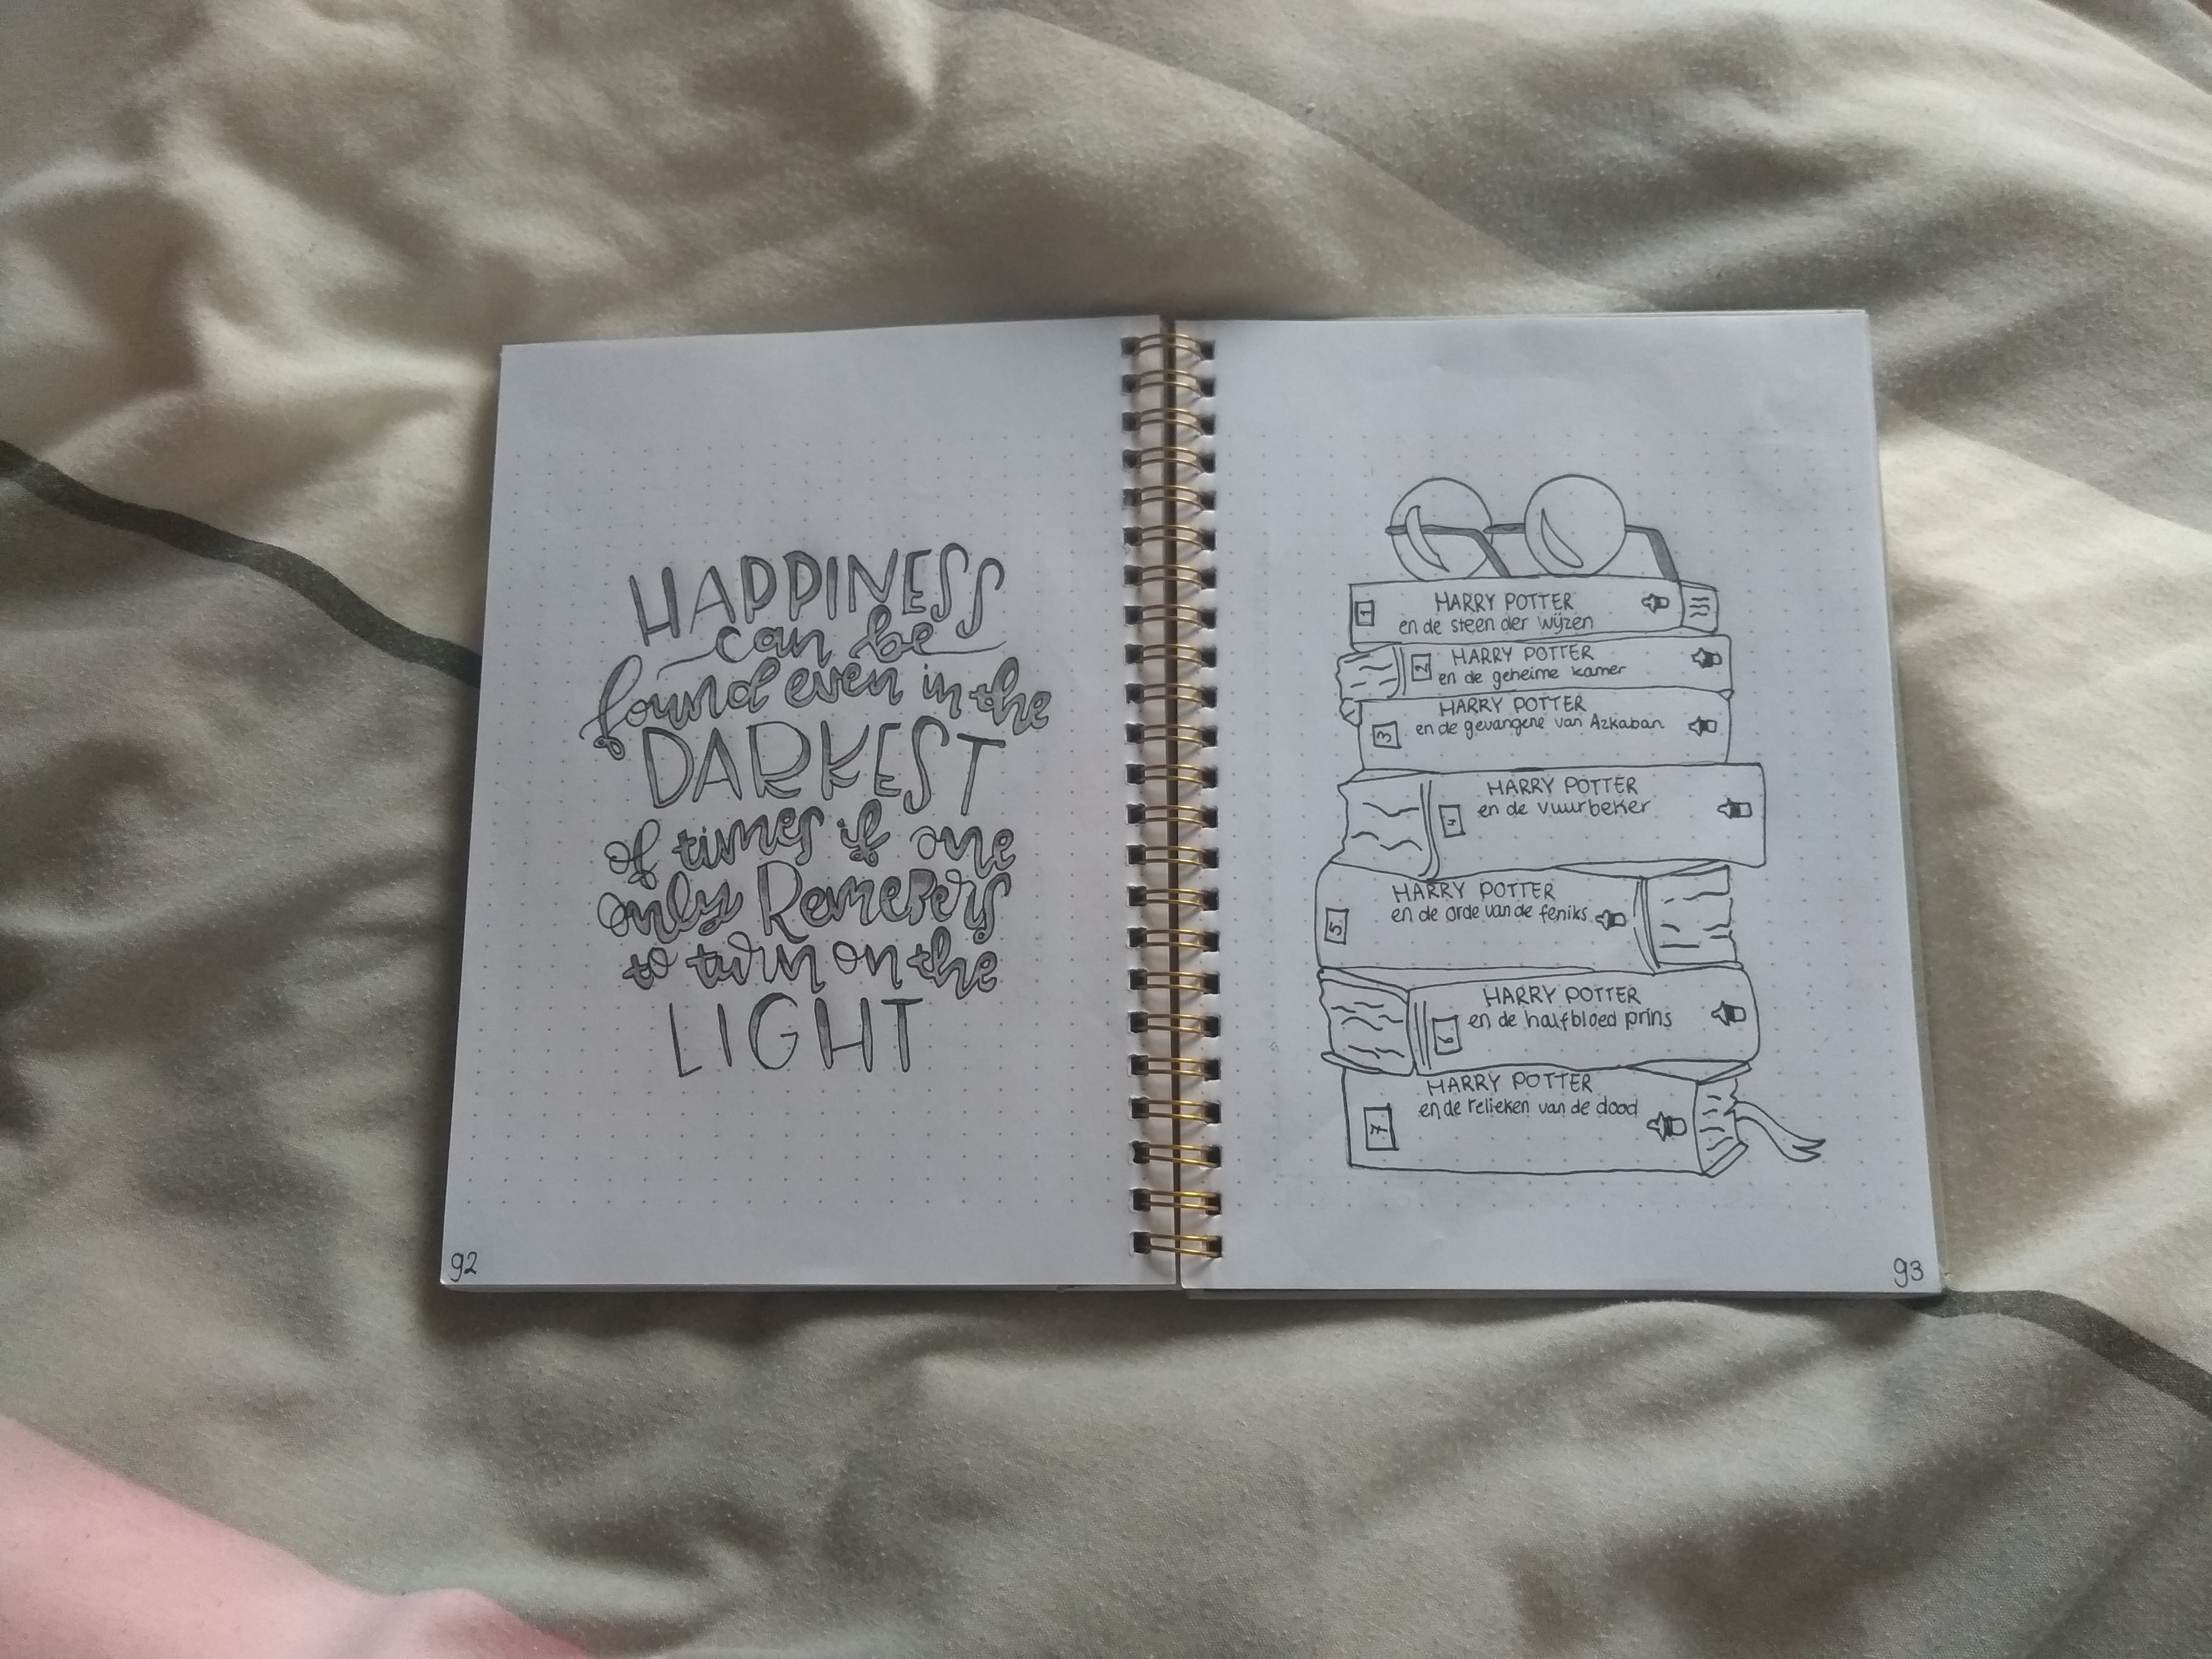 HAPPINESS
can be
found even in the
DARKEST
of times if one
only Remebers
to turn on the
LIGHT
92
1
HARRY POTTER
en de steen der wijzen
2
HARRY POTTER
en de geheime kamer
3
HARRY POTTER
en de gevangene van Azkaban
4
HARRY POTTER
en de vuurbeker
5
HARRY POTTER
en de orde van de feniks
6
HARRY POTTER
en de halfbloed prins
7
HARRY POTTER
en de relieken van de dood
93